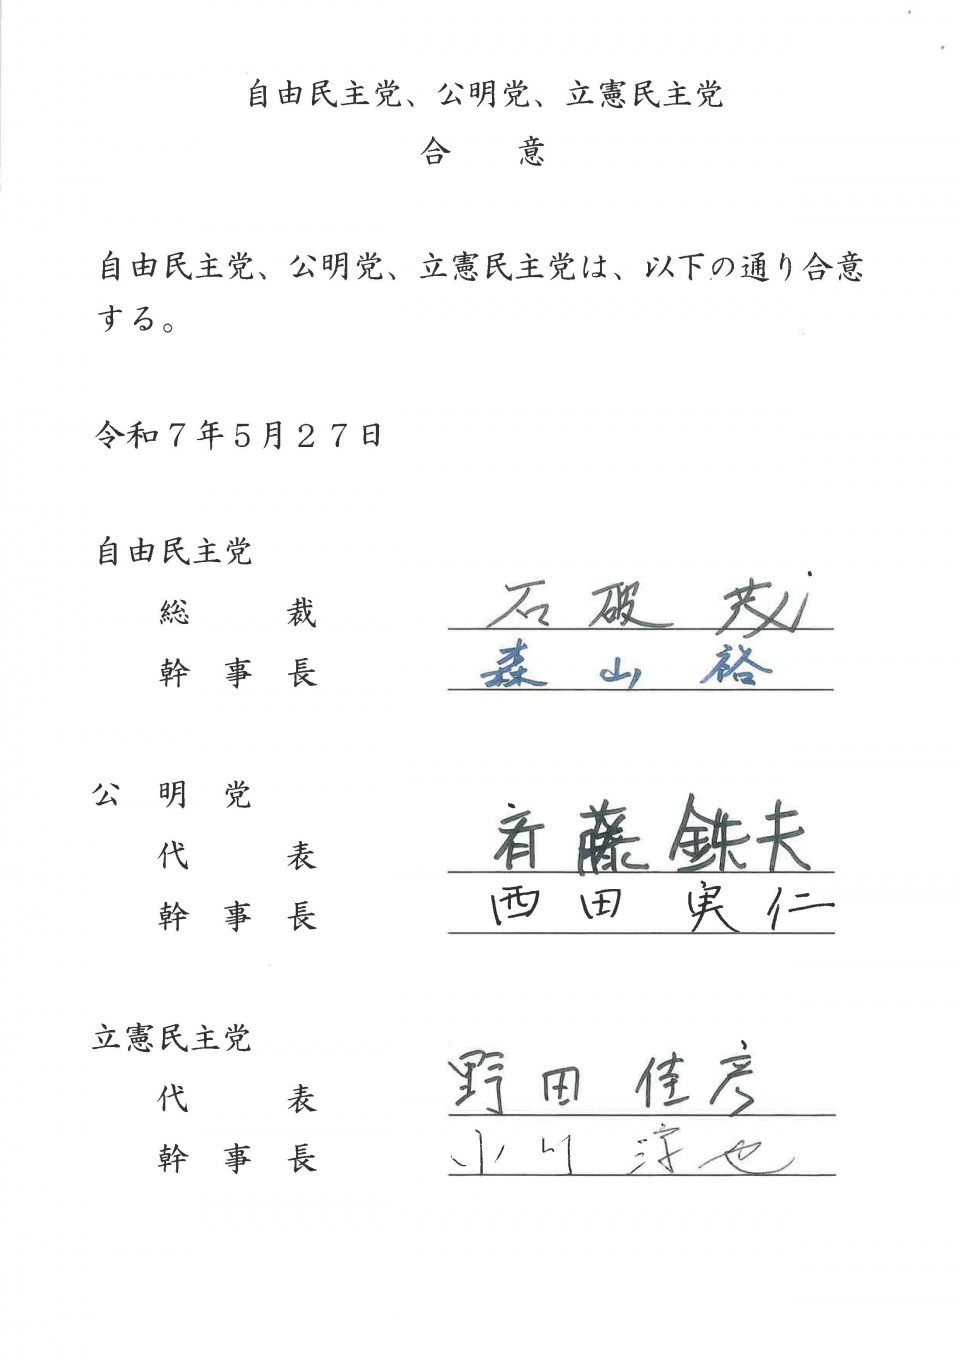 自由民主党、公明党、立憲民主党
合　　意
自由民主党、公明党、立憲民主党は、以下の通り合意
する。
令和７年５月２７日
自由民主党
総　　　裁　石破　茂
幹　事　長　森山　裕
公　明　党
代　　　表　斉藤鉄夫
幹　事　長　西田　実仁
立憲民主党
代　　　表　野田　佳彦
幹　事　長　小川　淳也